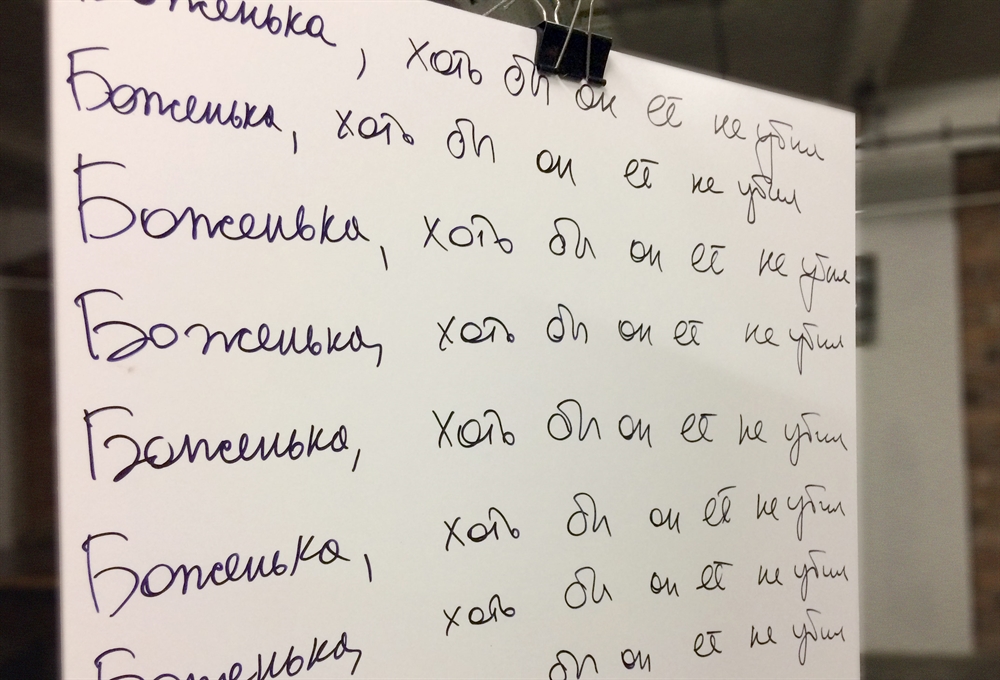 Боженька, хоть бы он её не убил
Боженька, хоть бы он её не убил
Боженька, хоть бы он её не убил
Боженька, хоть бы он её не убил
Боженька, хоть бы он её не убил
Боженька, хоть бы он её не убил
Боженька, хоть бы он её не убил
бы он её не убил